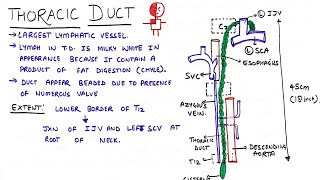 THORACIC DUCT
→ LARGEST LYMPHATIC VESSEL.
→ LYMPH IN T.D. IS MILKY WHITE IN
APPEARANCE BECAUSE IT CONTAIN A
PRODUCT OF FAT DIGESTION (CHYLE).
→ DUCT APPEAR BEADED DUE TO PRESENCE
OF NUMEROUS VALVE
EXTENT: LOWER BORDER OF T12
↓
JXN OF IJV AND LEFT SCV AT
ROOT OF NECK.
C7
(L) IJV
(L) SCA
ESOPHAGUS
SVC
45cm
(18 inch)
AZYGOUS
VEIN.
THORACIC
DUCT
T12
DESCENDING
AORTA